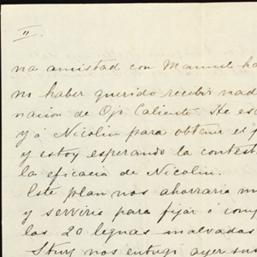 11.
na amistad con Manuel ha
no haber querido recibir nad
nación de Ojo Caliente. He es
y á Nicolin para obtener el p
y estoy esperando la contest
la eficacia de Nicolin.
Este plan nos ahorraria m
y serviria para fijar ó comp
las 20 leguas malvadas
nos entregó ayer su